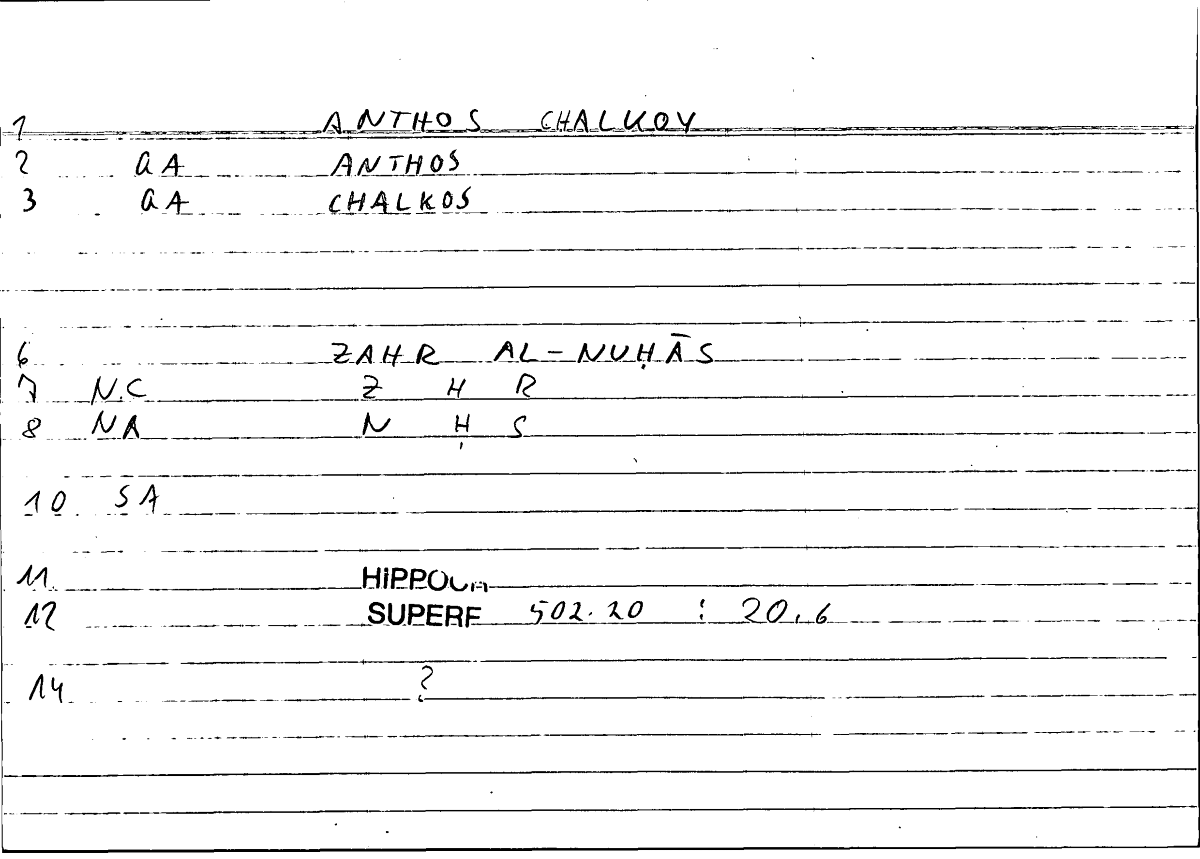 1 ANTHOS CHALKOY
2 GA ANTHOS
3 GA CHALKOS
6 ZAHR AL-NUḤĀS
7 N.C Z H R
8 NA N Ḥ S
10 SA
11
12 SUPERF 502.20 : 20,6
14 ?